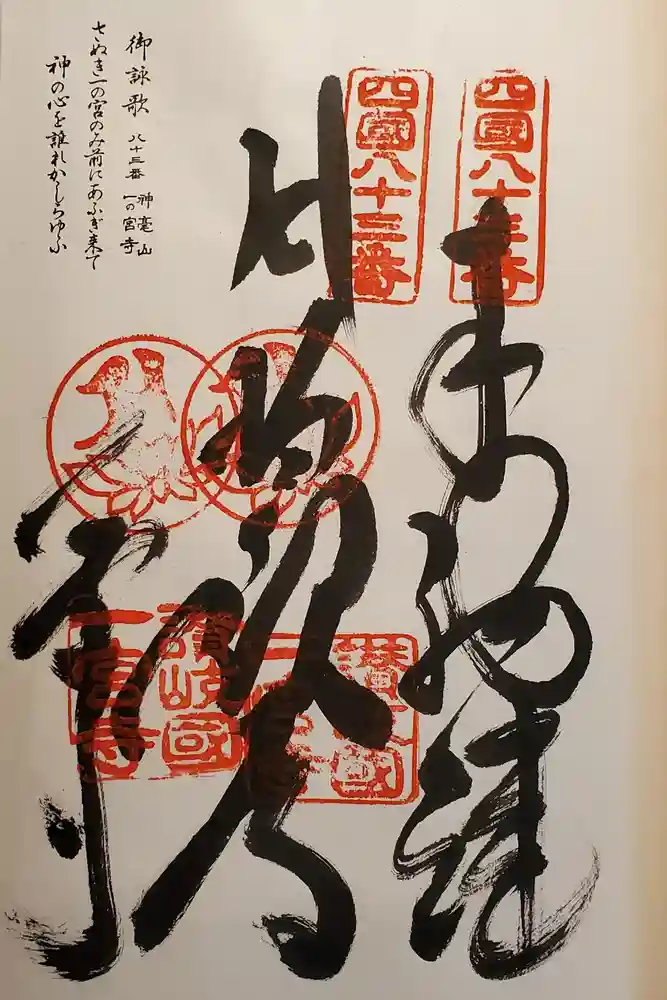 四國八十三番
奉納経
四國八十三番
讃岐國
一宮寺
讃岐國
一宮寺
御詠歌 八十三番 神毫山 一の宮寺
さぬき一の宮のみ前にあふぎ来て
神の心を誰れかしらゆふ